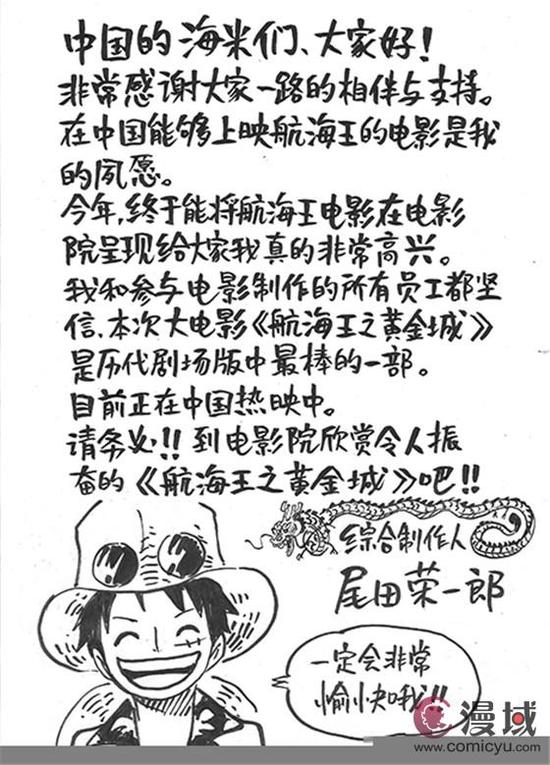 中国的海米们、大家好！
非常感谢大家一路的相伴与支持。
在中国能够上映航海王的电影是我
的夙愿。
今年，终于能将航海王电影在电影
院呈现给大家我真的非常高兴。
我和参与电影制作的所有员工都坚
信、本次大电影《航海王之黄金城》
是历代剧场版中最棒的一部。
目前正在中国热映中。
请务必!! 到电影院欣赏令人振
奋的《航海王之黄金城》吧!!
综合制作人
尾田荣一郎
一定会非常
愉快哦!!
漫域
www.comicyu.com